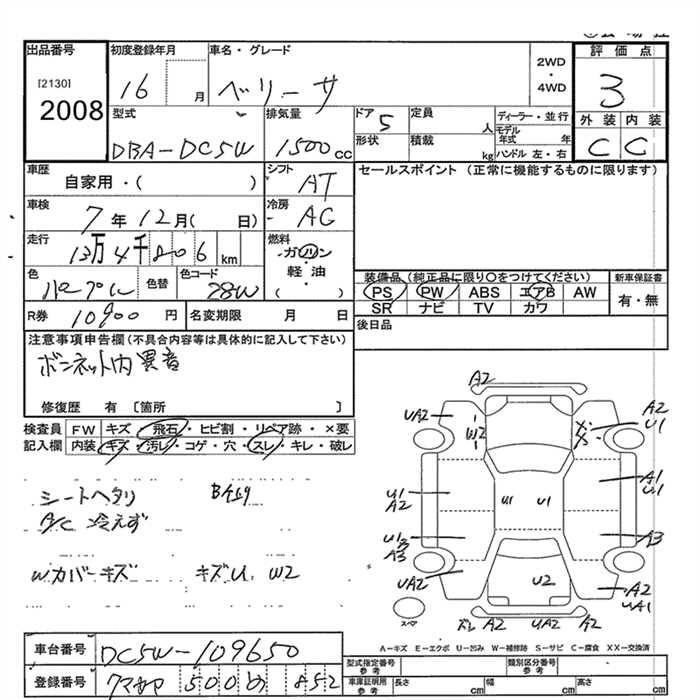 出品番号
[2130]
2008
初度登録年月
16 月
車名・グレード
ベリーサ
2WD
・
4WD
評価点
3
外装 内装
C C
型式
DBA-DC5W
排気量
1500 cc
ドア
5
形状
定員
人
積載
kg
ディーラー・並行
モデル年式 年
ハンドル 左・右
車歴
自家用・( )
シフト
AT
セールスポイント (正常に機能するものに限ります)
車検
7年12月( 日)
冷房
AC
走行
13万4千806km
燃料
ガソリン
・
軽油
( )
色
色替
色コード
28W
装備品 (純正品に限り○をつけてください)
PS PW ABS エアB AW
SR ナビ TV カワ
新車保証書
有・無
R券
10900 円
名変期限 月 日
後日品
注意事項申告欄(不具合内容等は具体的に記入して下さい)
ボンネット内異音
修復歴 有〔箇所 〕
検査員記入欄
FW キズ・飛石・ヒビ割・リペア跡・×要
内装 キズ・汚レ・コゲ・穴・スレ・キレ・破レ
シートヘタリ
A/C 冷えず
Wカバーキズ キズU、W2
A2
UA2
W2
A2
U1
U1
A2
U1
U1
A1
U1
U1
A3
A3
UA2
U2
A2
UA1
スペア
ズレ A2 UA2 A2
A-キズ E-エクボ U-凹み W-補修跡 S-サビ C-腐食 XX-交換済
車台番号
DC5W-109650
登録番号
500 852
型式指定番号
参考
類別区分番号
参考
車庫証明用
参考
長さ cm
幅 cm
高さ cm